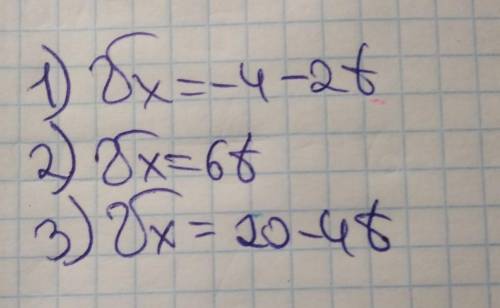 1) υx = -4 - 2t
2) υx = 6t
3) υx = 20 - 4t